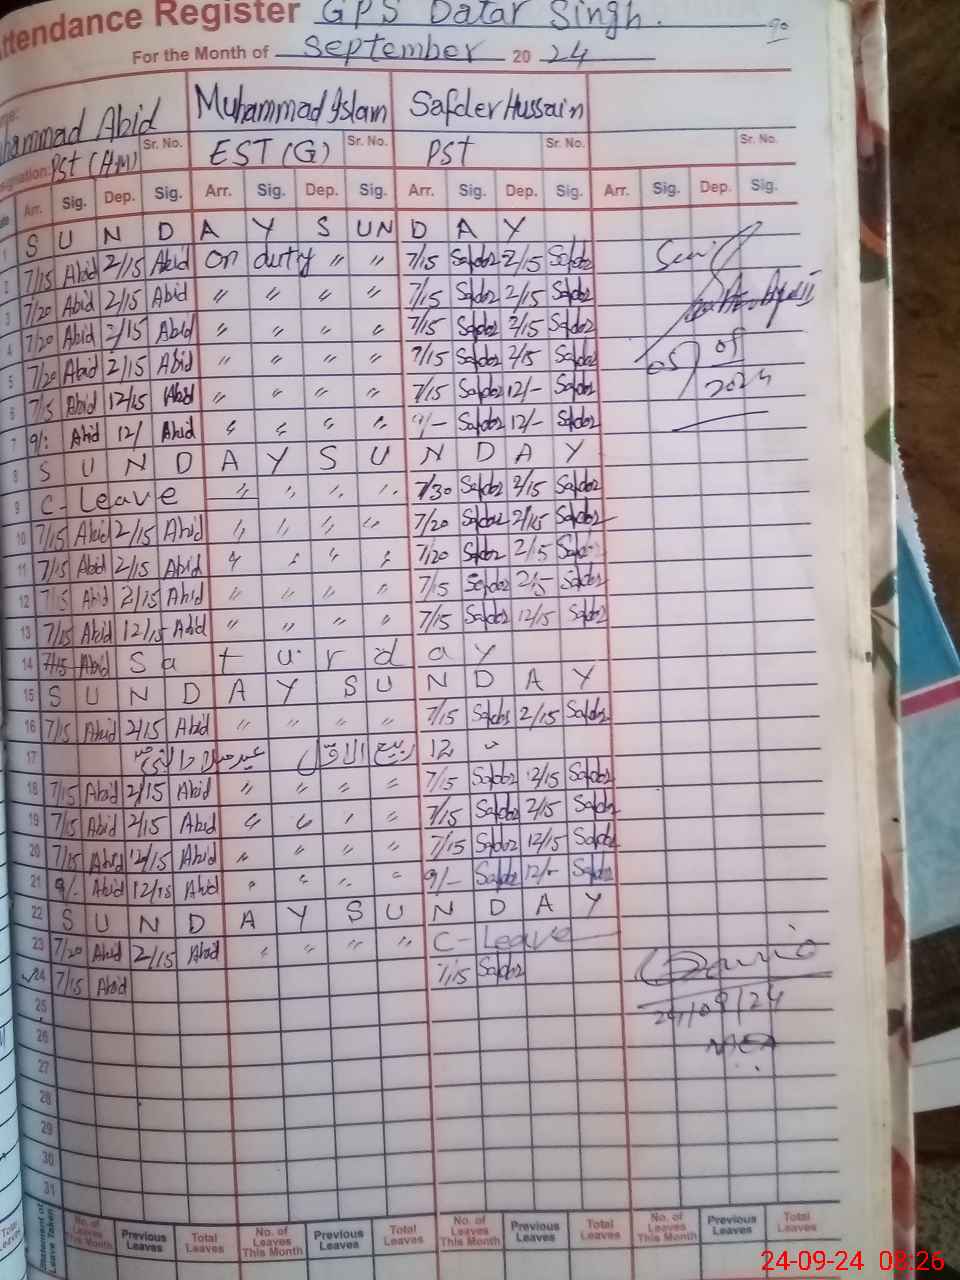 Attendance Register GPS Datar Singh.
For the Month of September 2024
Muhammad Abid Muhammad Islam Safder Hussain
Sr. No. Sr. No. Sr. No. Sr. No.
PST (H.M) EST (G) PST
Arr. Sig. Dep. Sig. Arr. Sig. Dep. Sig. Arr. Sig. Dep. Sig. Arr. Sig. Dep. Sig.
1 S U N D A Y S UN D A Y
2 7/15 Abid 2/15 Abid on duty " " 7/15 Safder 2/15 Safder
3 7/20 Abid 2/15 Abid " " " " 7/15 Safder 2/15 Safder
4 7/20 Abid 2/15 Abid " " " " 7/15 Safder 2/15 Safder
5 7/20 Abid 2/15 Abid " " " " 7/15 Safder 2/15 Safder
6 7/15 Abid 12/15 Abid " " " " 7/15 Safder 12/- Safder
7 9/: Abid 12/ Abid " " " " 9/- Safder 12/- Safder
8 S U N D A Y S U N D A Y
9 C-Leave " " " " 7/30 Safder 2/15 Safder
10 7/15 Abid 2/15 Abid " " " " 7/20 Safder 2/15 Safder
11 7/15 Abid 2/15 Abid " " " " 7/20 Safder 2/15 Safder
12 7/15 Abid 2/15 Abid " " " " 7/15 Safder 2/15 Safder
13 7/15 Abid 12/15 Abid " " " " 7/15 Safder 12/15 Safder
14 7/15 Abid S a t u r d a y
15 S U N D A Y S U N D A Y
16 7/15 Abid 2/15 Abid " " " " 7/15 Safder 2/15 Safder
17 12 ربیع الاول
18 7/15 Abid 2/15 Abid " " " " 7/15 Safder 12/15 Safder
19 7/15 Abid 2/15 Abid " " " " 7/15 Safder 2/15 Safder
20 7/15 Abid 12/15 Abid " " " " 7/15 Safder 12/15 Safder
21 9/- Abid 12/15 Abid " " " " 9/- Safder 12/- Safder
22 S U N D A Y S U N D A Y
23 7/20 Abid 2/15 Abid " " " " C-Leave
24 7/15 Abid 7/15 Safder
25 24/09/24
26 MEA
27
28
29
30
31
Statement of Leave Taken No. of Leaves This Month Previous Leaves Total Leaves No. of Leaves This Month Previous Leaves Total Leaves No. of Leaves This Month Previous Leaves Total Leaves No. of Leaves This Month Previous Leaves Total Leaves
24-09-24 08:26